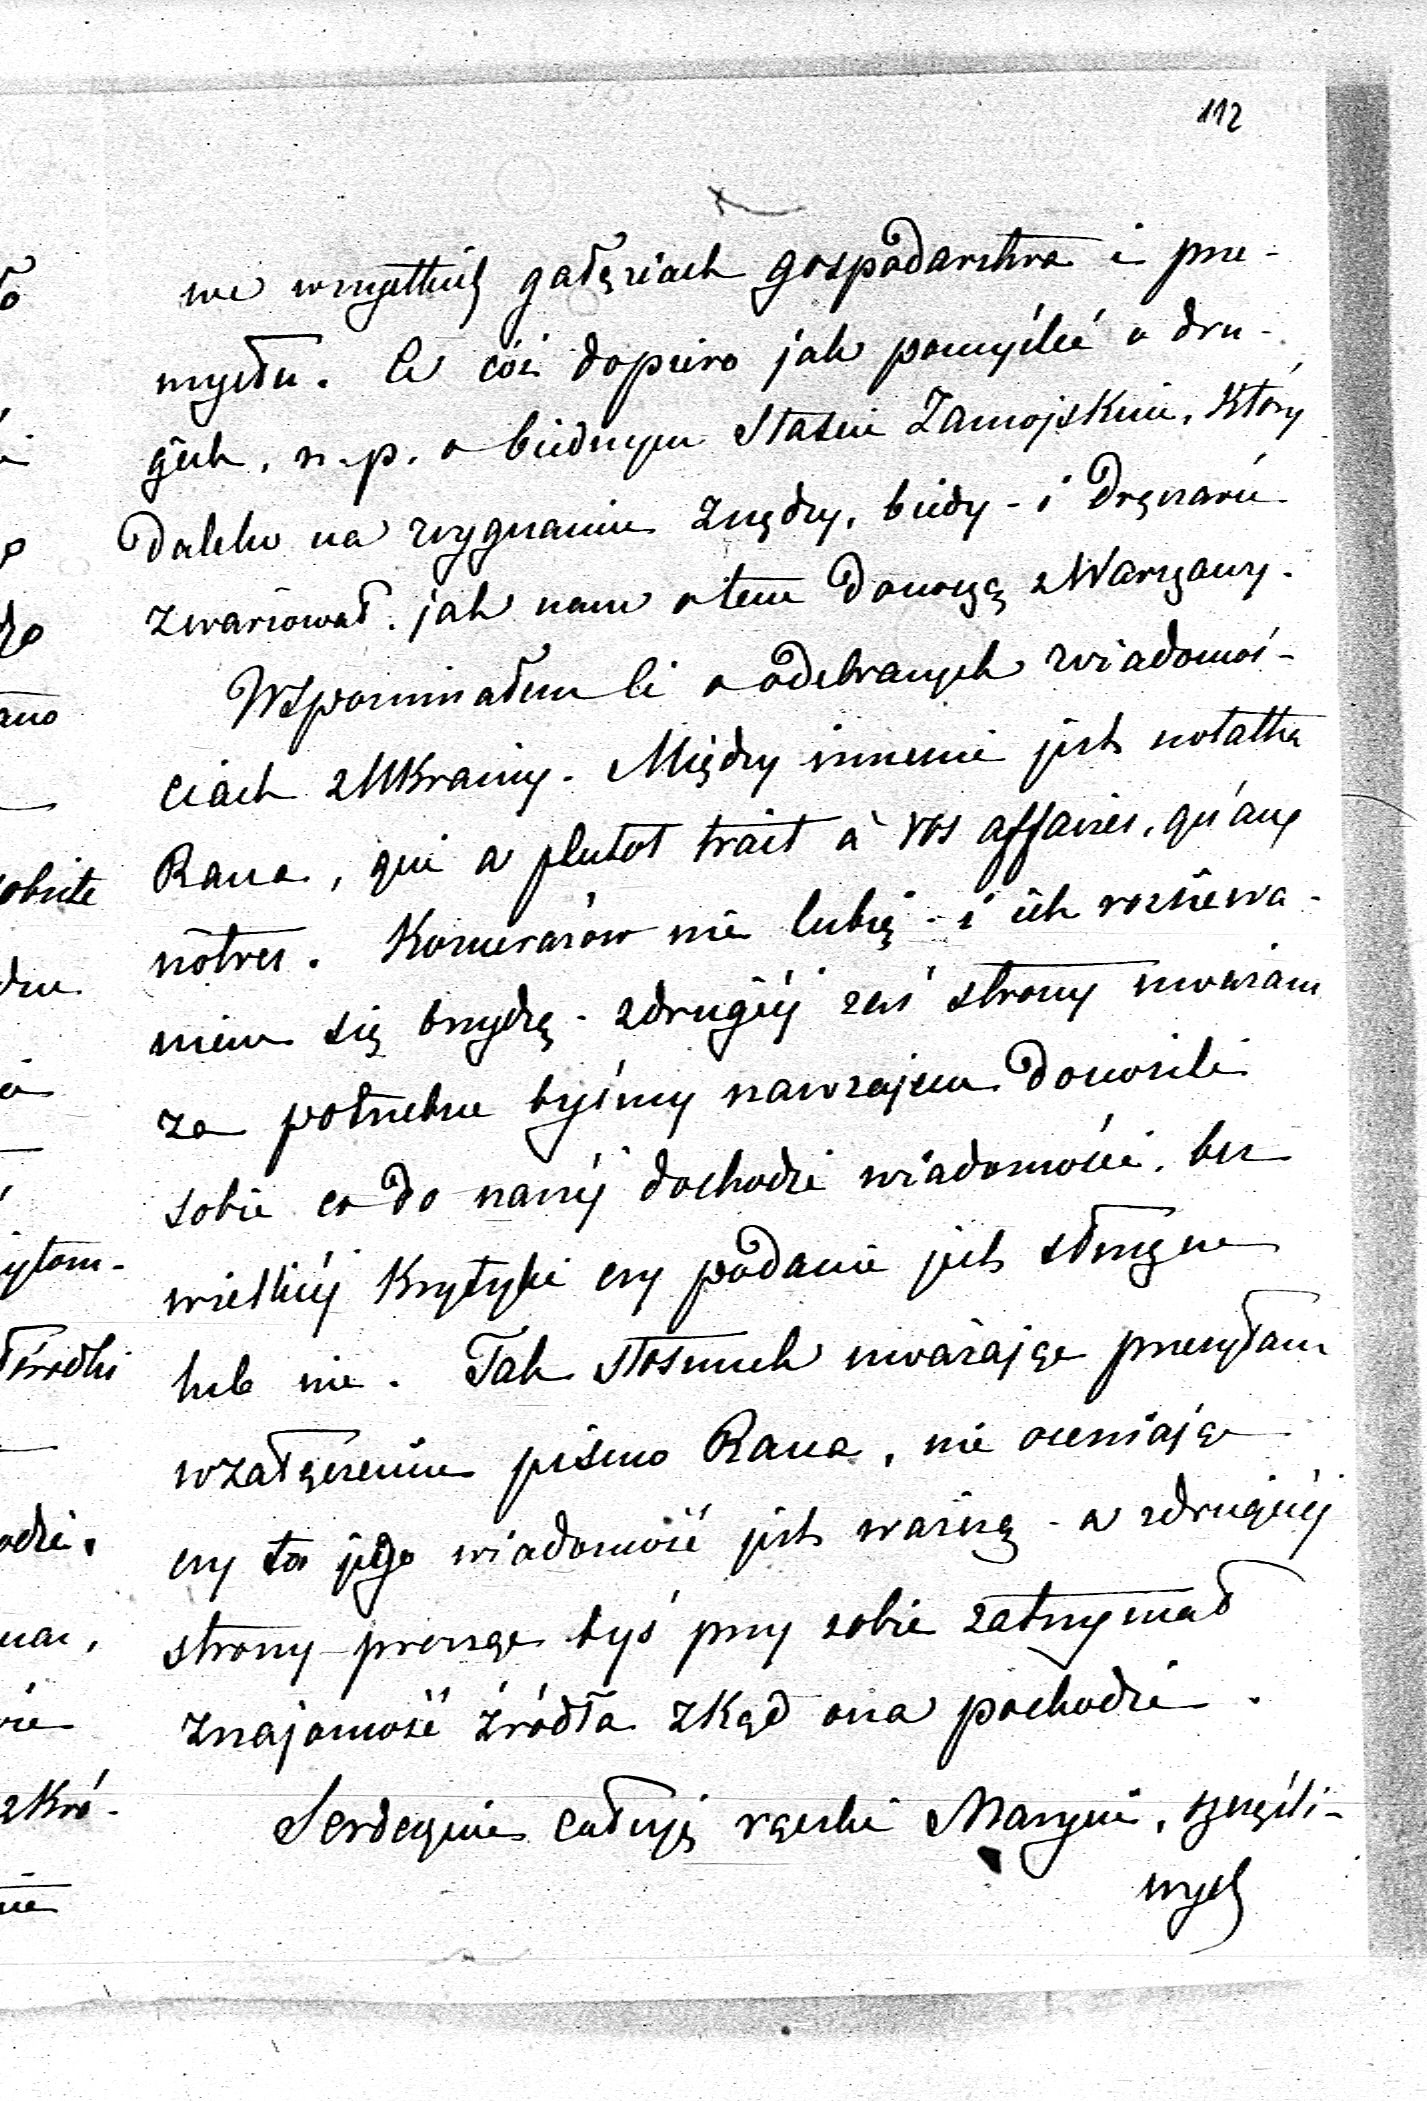 112
we wszystkich gałęziach gospodarstwa i prze-
mysłu. A cóż dopiero jak pomyśleć o dru-
gich, n.p. o biednym Stasiu Zamojskim, który
daleko na wygnaniu z nędzy, biedy - i dręczarń
zwariował. jak nam o tem donoszą z Warszawy.
Wspominałem Ci o odebranych wiadomoś-
ciach z Ukrainy. Między innemi jest notatka
Rana, qui a plutot trait à vos affaires, qu'aux
nôtres. Komerażów nie lubię - i ich rozsiewa-
niem się brzydzę - z drugiéj zaś strony uważam
za potrzebne byśmy nawzajem donosili
sobie co do naszéj dochodzi wiadomości, bez
wielkiéj krytyki czy podanie jest słuszne
lub nie. Tak stosunek uważając przesyłam
w załączeniu pismo Rana, nie oceniając
czy ta jego wiadomość jest ważną - a z drugiéj
strony prosząc byś przy sobie zatrzymał
znajomość źródła zkąd ona pochodzi.
Serdecznie całuję rączki Maryni, szczęśli-
wych